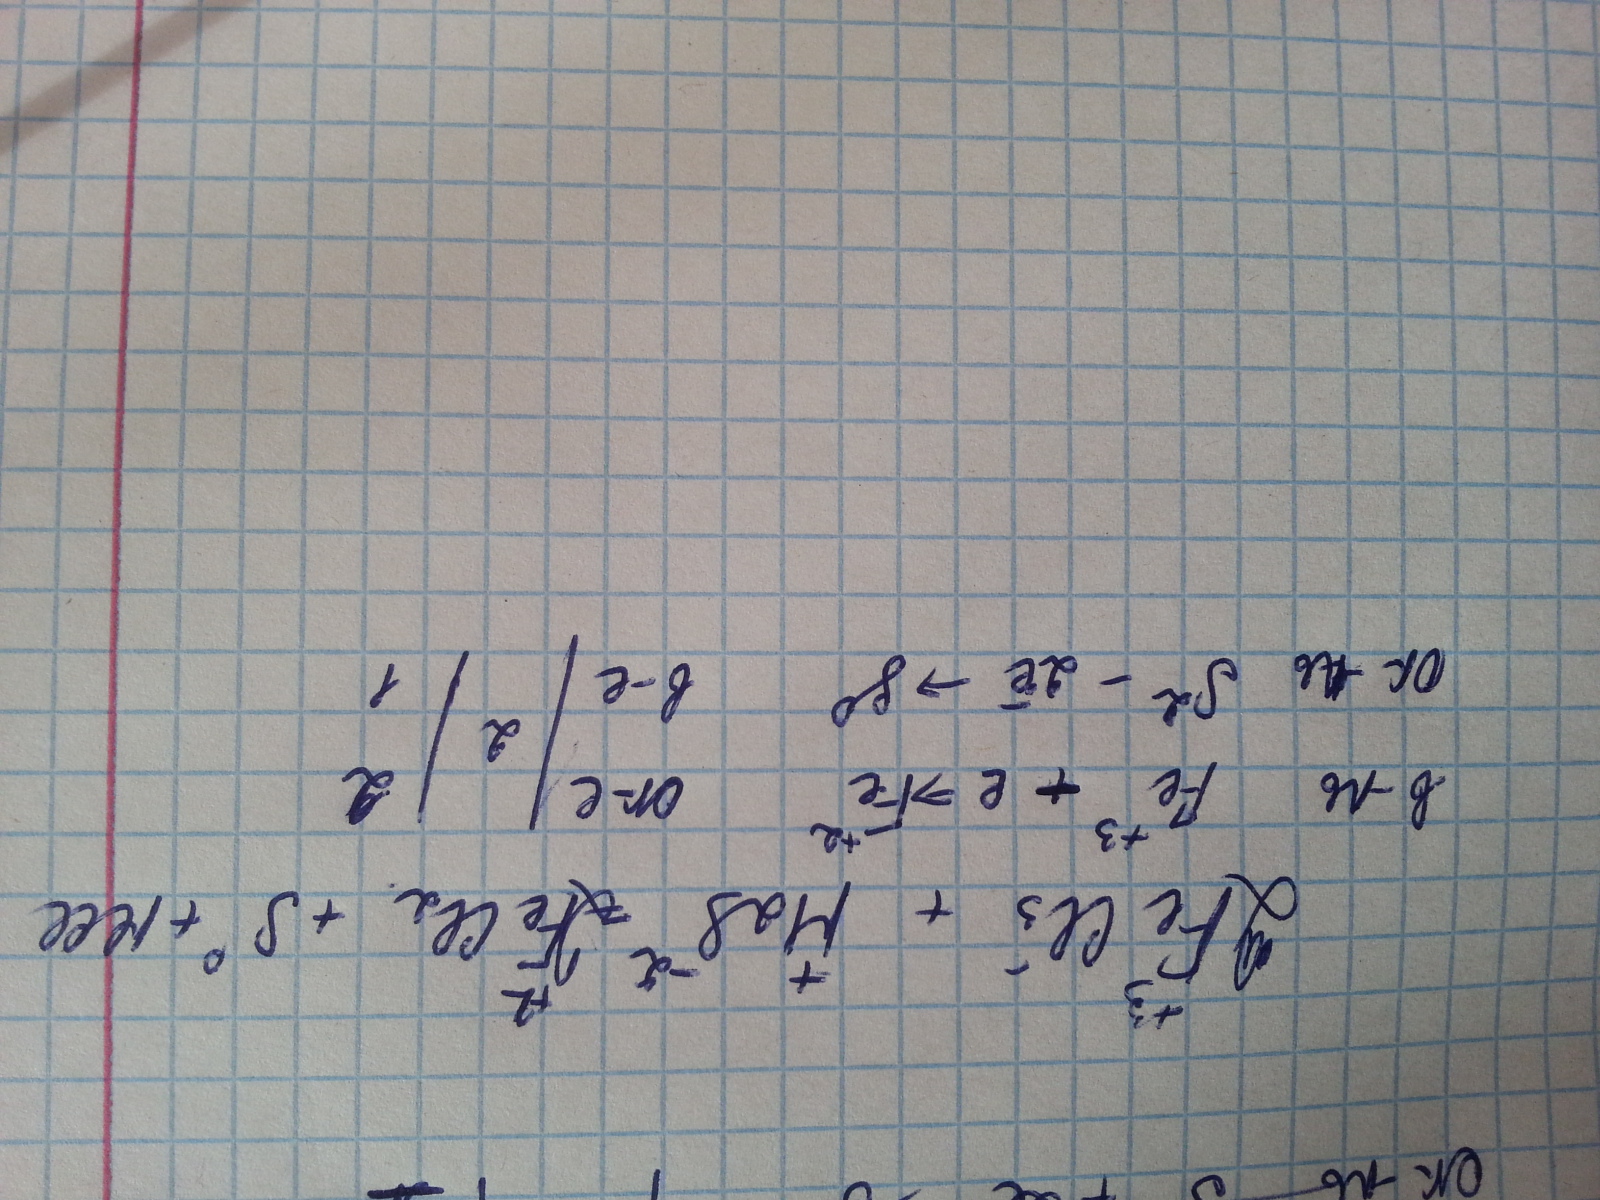 ок-ль
+3 + -2 +2
2FeCl3⁻ + H2S 2FeCl2 + S⁰ + HCl
в-ль Fe⁺³ + e → Fe⁺² ок-е / 2
2
ок-ль S² - 2e̅ → S⁰ в-е / 1